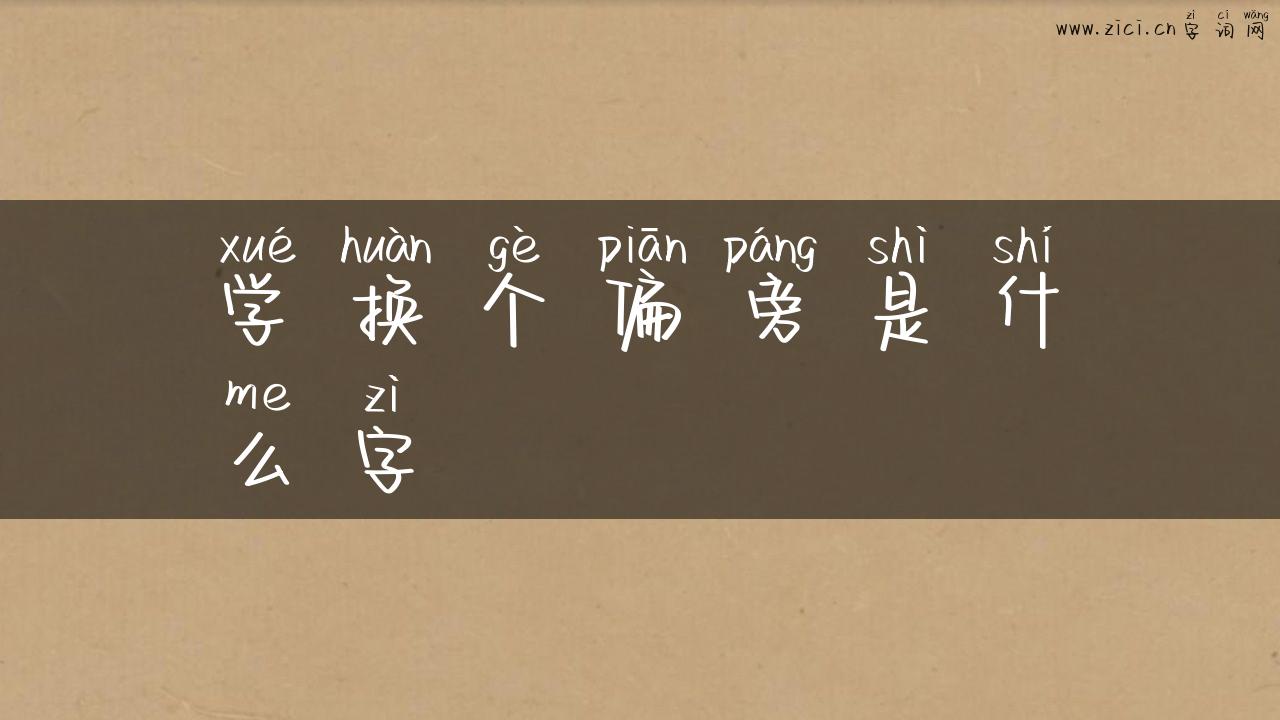 zì cí wǎng
www.zici.cn 字词网
xué huàn gè piān páng shì shí
学换个偏旁是什
me zì
么字